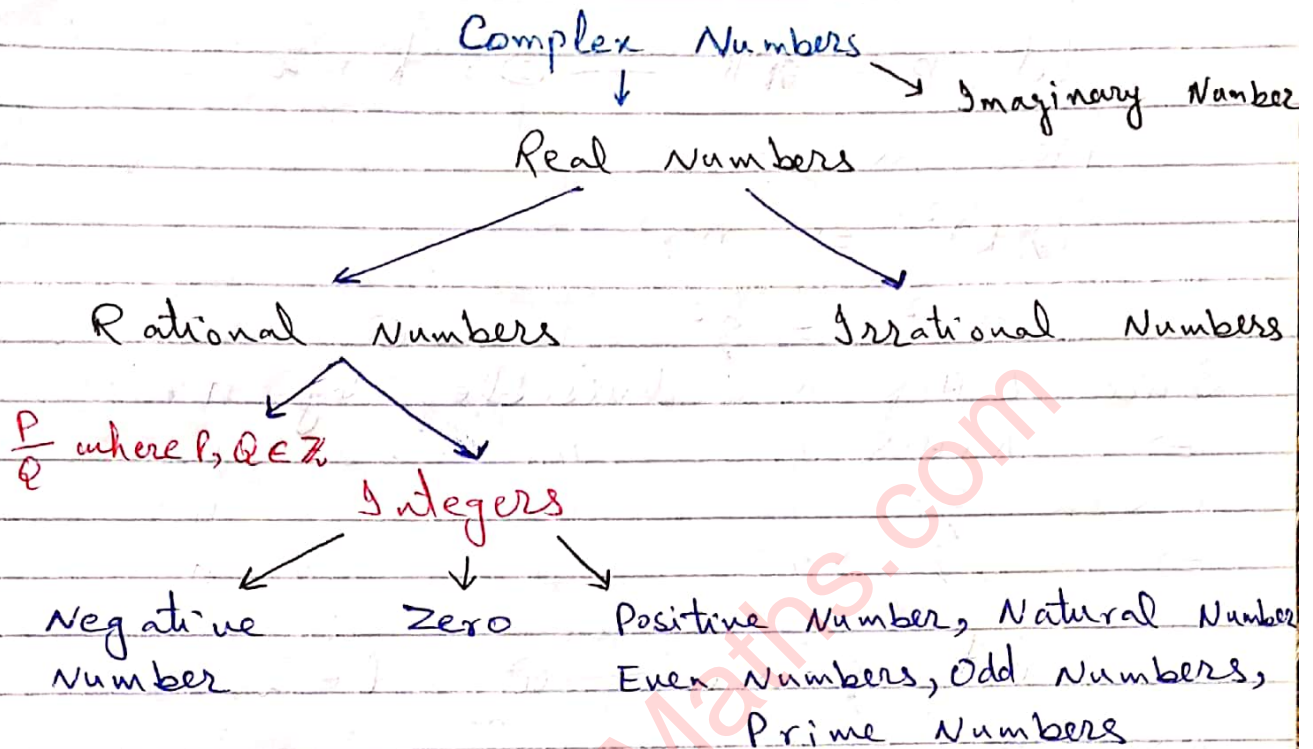 Complex Numbers
Imaginary Number
Real Numbers
Rational Numbers Irrational Numbers
P/Q where P, Q ∈ ℤ
Integers
Negative Zero Positive Number, Natural Number
Number Even Numbers, Odd Numbers,
Prime Numbers
Maths.com